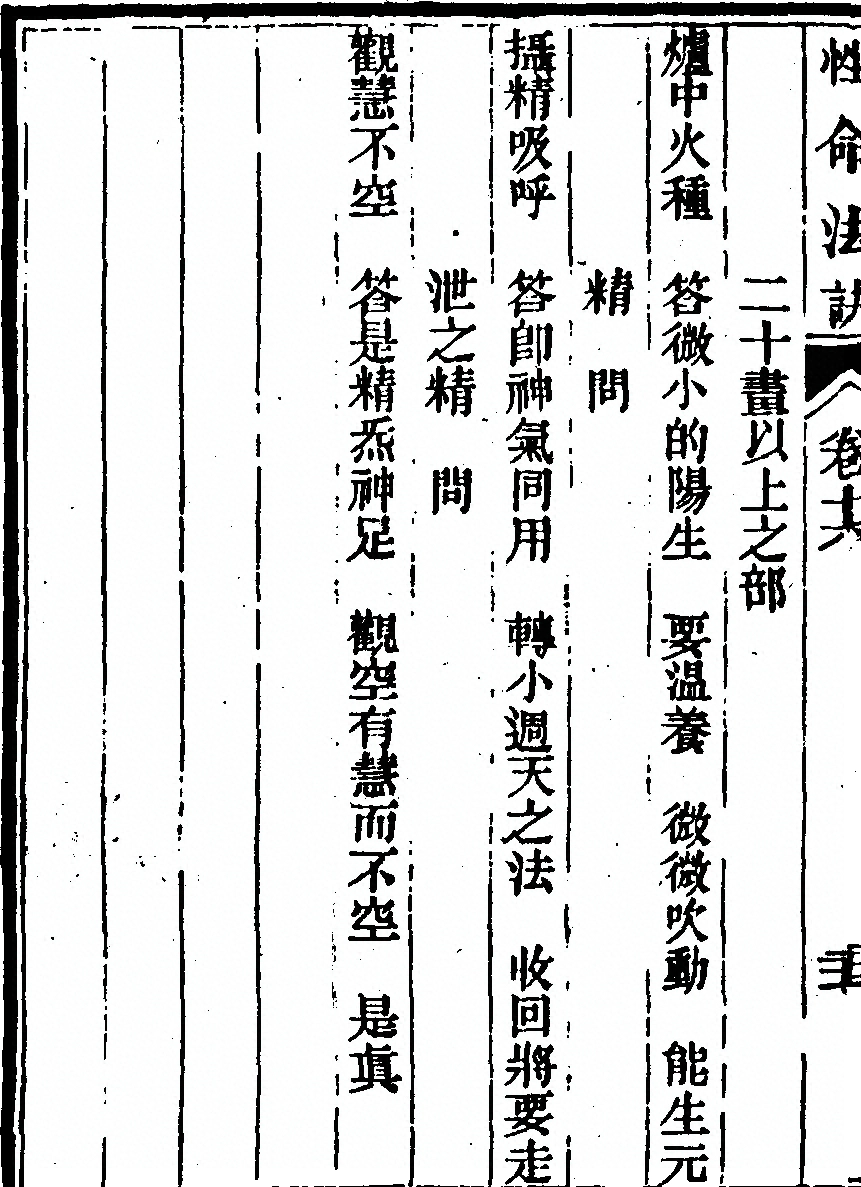 性命法訣 卷十六
二十畫以上之部
爐中火種 答微小的陽生 要温養 微微吹動 能生元
精 問
攝精吸呼 答卽神氣同用 轉小週天之法 收回將要走
泄之精 問
觀慧不空 答是精炁神足 觀空有慧而不空 是眞